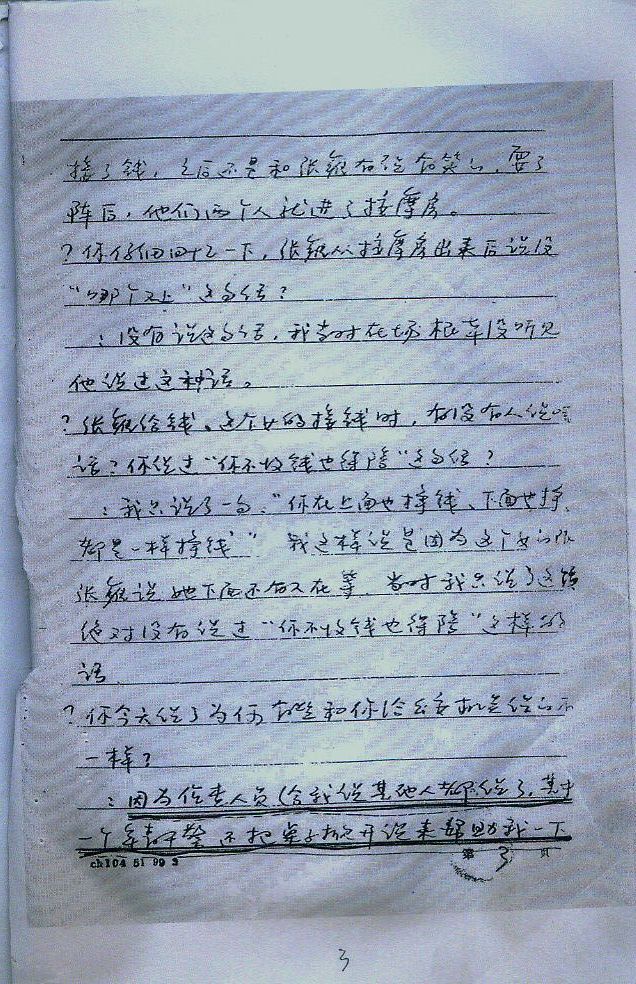 接了钱，之后还是和张 有说有笑的，耍了
阵后，他们两个人就进了按摩房。
？你仔细回忆一下，张 从按摩房出来后说没
“哪个又上”这句话？
：没有说这句话，我当时在场根本没听见
他说过这种话。
？张 给钱、这个女的接钱时，有没有人说
话？你说过“你不收钱也得陪”这句话？
：我只说了一句，“你在上面也挣钱、下面也挣，
都是一样挣钱”我这样说是因为这个女的
张 说她下面还有人在等，当时我只说了这
绝对没有说过“你不收钱也得陪”这样的
话
？你今天说了为何 和你给公安机关说的不
一样？
：因为侦查人员给我说其他人都说了，其中
一个 还把 子 开说来帮助我一下
ch104 51 99 3
第 3 页
3